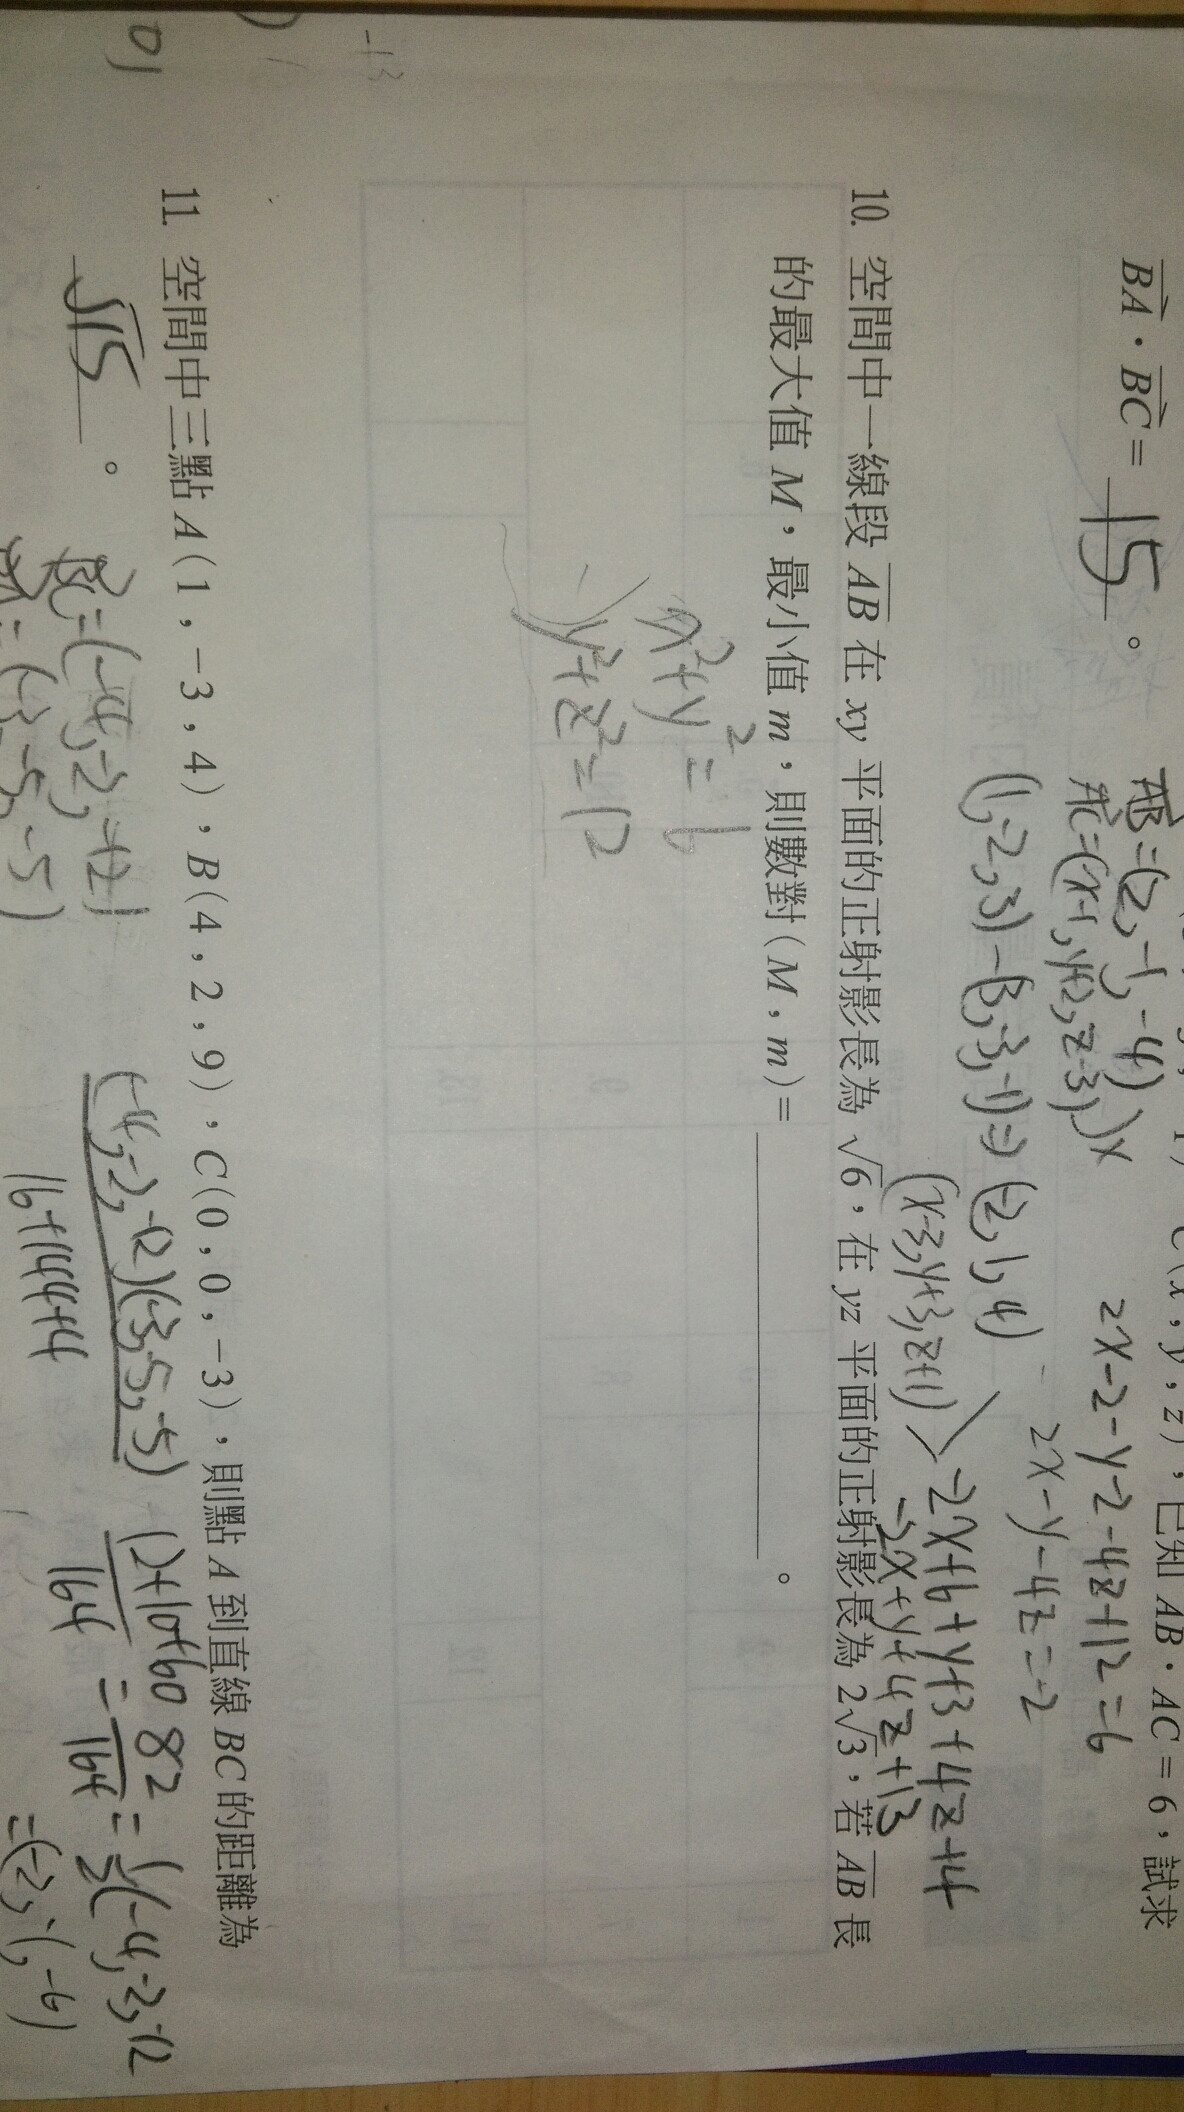 C(x , y , z) , 已知 AB · AC = 6 , 試求
BA · BC = 15 。
AB = (2, -1, -4)
AC = (x-1, y+2, z-3)
2x-2-y-2-4z+12=6
2x-y-4z=-2
(1,-2,3)-(3,-3,-1)⇒(-2,1,4)
(x-3,y+3,z+1)
-2x+6+y+3+4z+4
-2x+y+4z+13
10. 空間中一線段 AB 在 xy 平面的正射影長為 √6 , 在 yz 平面的正射影長為 2√3 , 若 AB 長
的最大值 M , 最小值 m , 則數對 (M , m) = 。
x²+y²=6
y²+z²=12
-13
11. 空間中三點 A(1 , -3 , 4) 、 B(4 , 2 , 9) 、 C(0 , 0 , -3) , 則點 A 到直線 BC 的距離為
√15 。
(-4,-2,-12)(-3,-5,-5)
16+144+4
12+10+60
164
= 82
164
= 1/2(-4,-2,-12
=(-2,-1,-6)
BC=(-4,-2,-12)
BA=(-3,-5,-5)